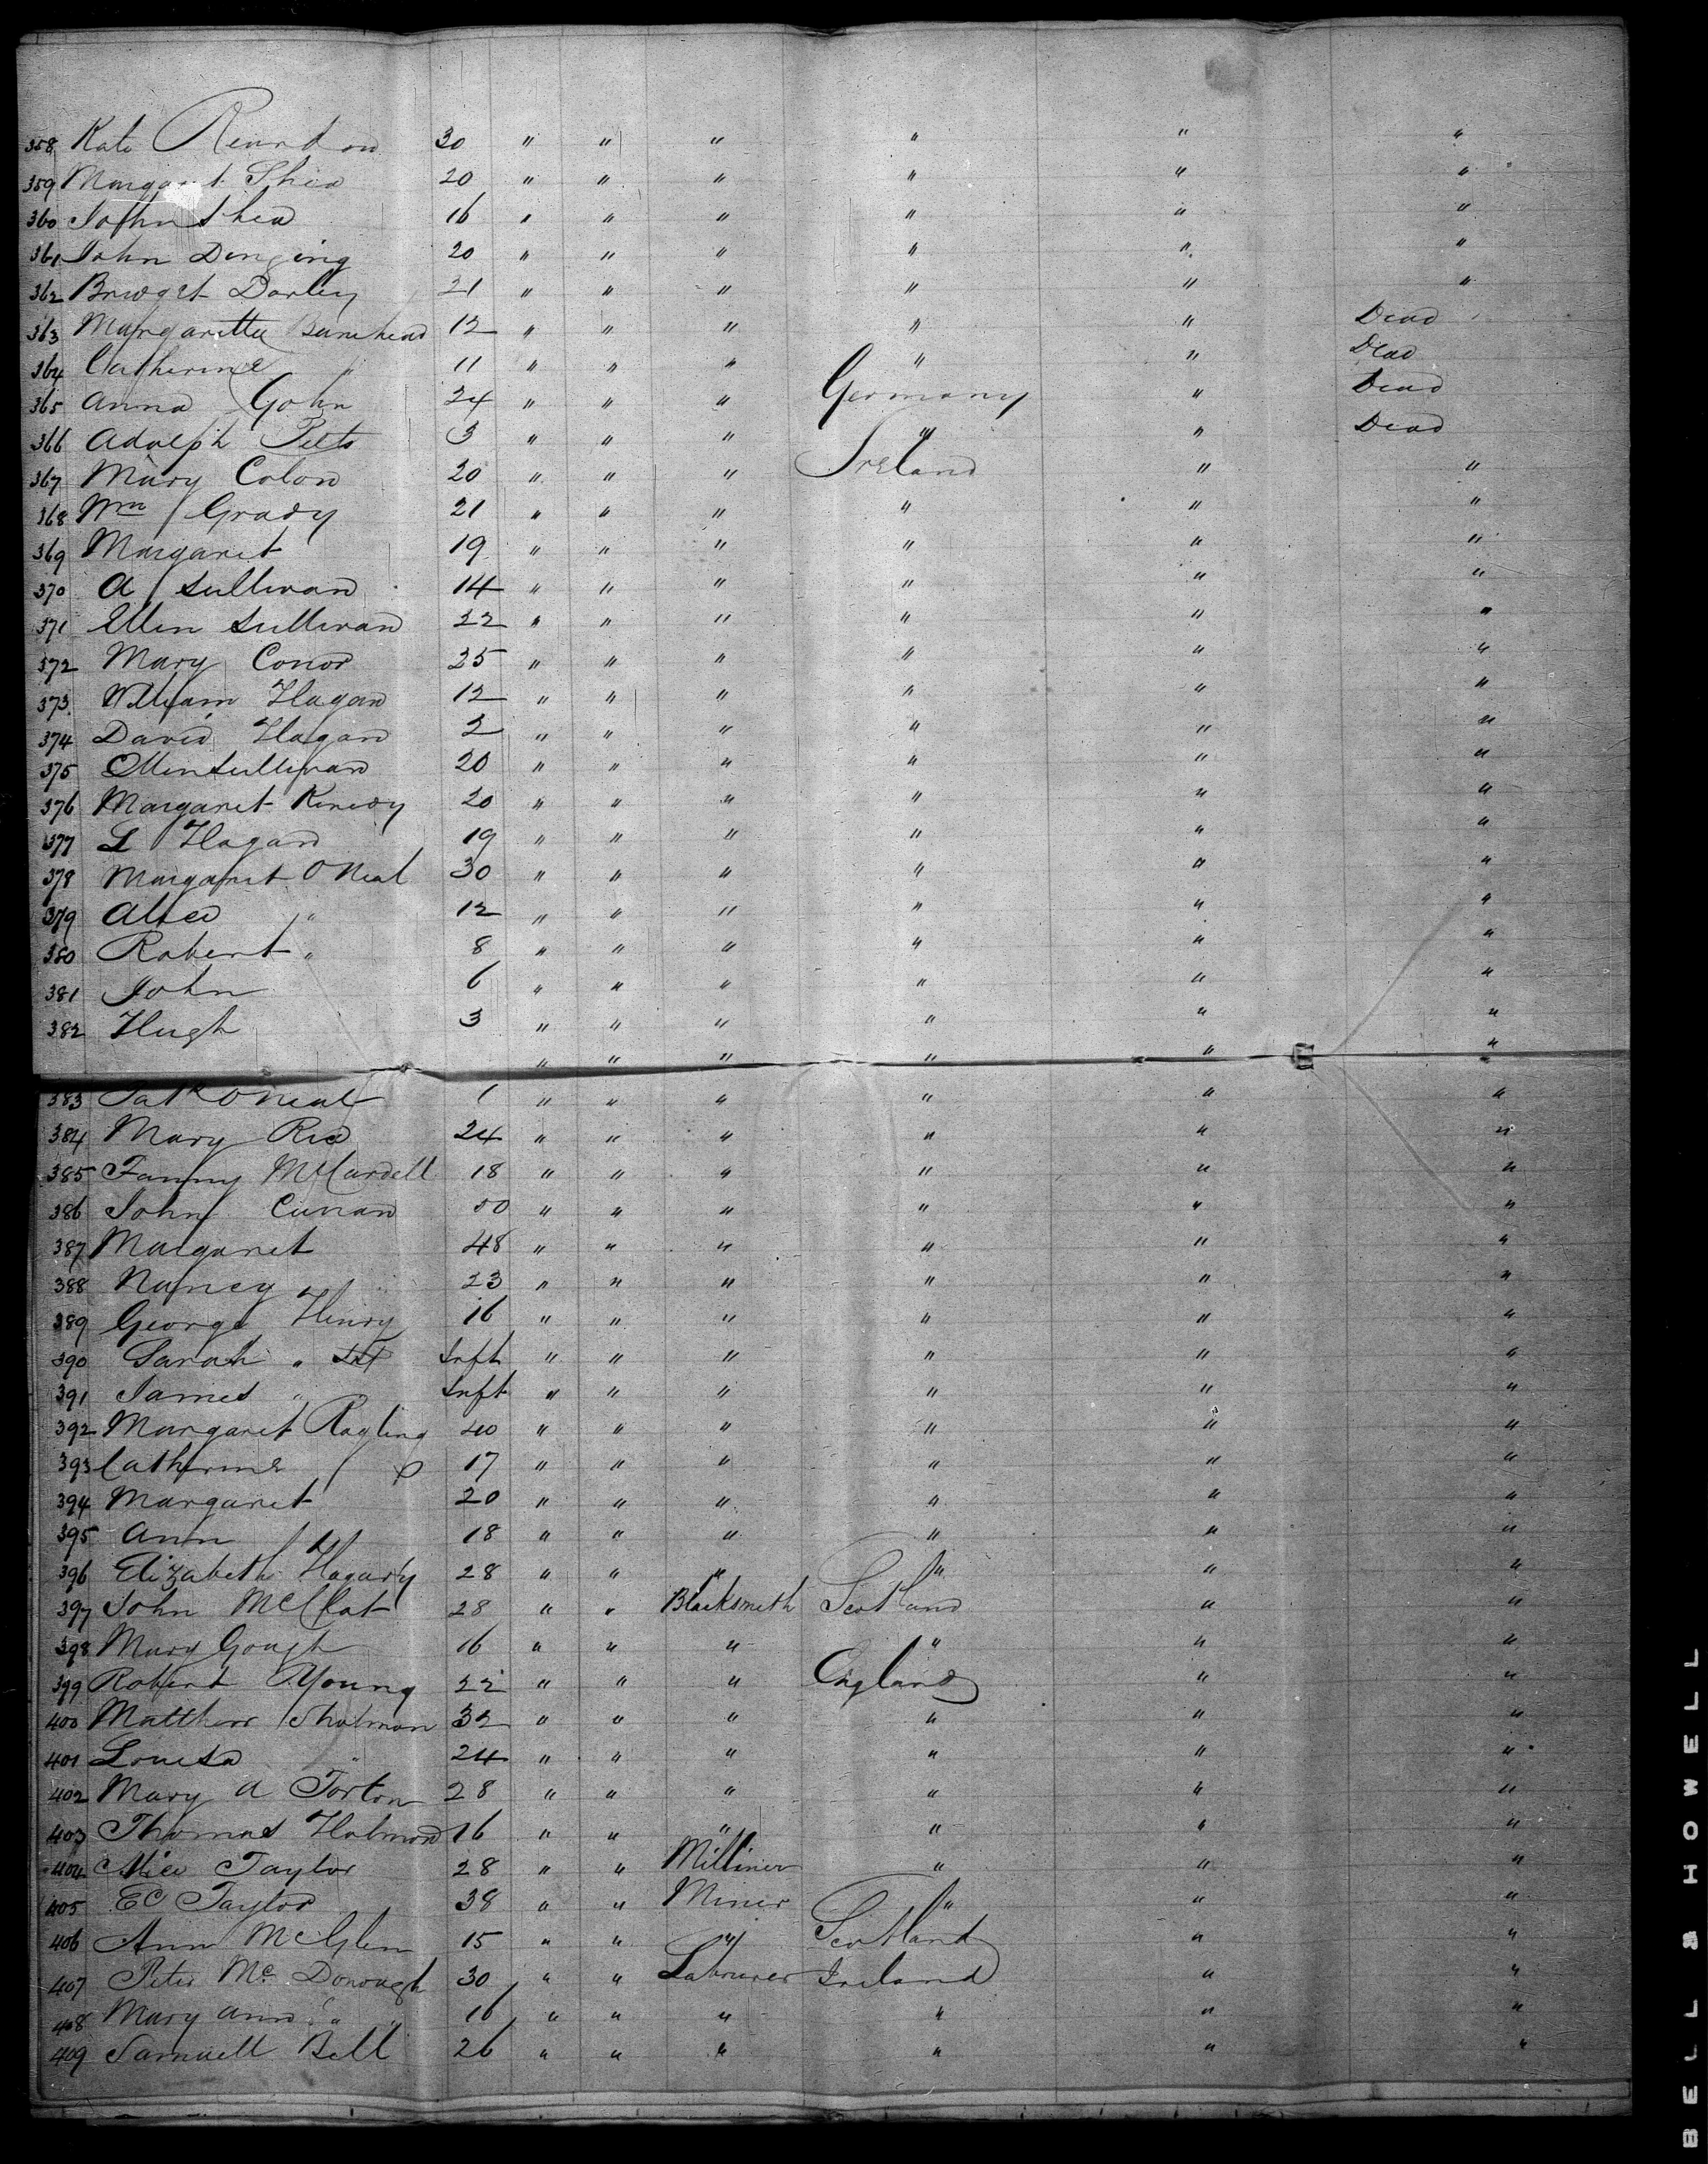 358 Kate Reardon 30 " " " " " "
359 Margaret Shea 20 " " " " " "
360 John Shea 16 " " " " " "
361 John 20 " " " " " "
362 Bridget Darley 21 " " " " " "
363 Margaretta 12 " " " " " Dead
364 Catherine " 11 " " " " " Dead
365 Anna Gohn 24 " " " Germany " Dead
366 Adolph Pitts 3 " " " " " Dead
367 Mary Colon 20 " " " Ireland " "
368 Wm Grady 21 " " " " " "
369 Margaret 19 " " " " " "
370 A Sullivan 14 " " " " " "
371 Ellen Sullivan 22 " " " " " "
372 Mary Conor 25 " " " " " "
373 William Hagan 12 " " " " " "
374 David Hagan 2 " " " " " "
375 Ellen Sullivan 20 " " " " " "
376 Margaret Kenedy 20 " " " " " "
377 L Hagan 19 " " " " " "
378 Margaret O Neal 30 " " " " " "
379 Alice " 12 " " " " " "
380 Robert " 8 " " " " " "
381 John 6 " " " " " "
382 Hugh 3 " " " " " "
" " " " " "
383 Pat K O Neal 1 " " " " " "
384 Mary Rea 24 " " " " " "
385 Fanny McCardell 18 " " " " " "
386 John Curran 50 " " " " " "
387 Margaret 48 " " " " " "
388 Nancy 23 " " " " " "
389 George Henry 16 " " " " " "
390 Sarah " Inft " " " " " "
391 James " Inft " " " " " "
392 Margaret Ragling 40 " " " " " "
393 Catherine 17 " " " " " "
394 Margaret 20 " " " " " "
395 Ann 18 " " " " " "
396 Elizabeth Hagarty 28 " " " " " "
397 John McClat 28 " " Blacksmith Scotland " "
398 Mary Gough 16 " " " " " "
399 Robert Young 22 " " " England " "
400 Matthew Sholman 32 " " " " " "
401 Louesa " 24 " " " " " "
402 Mary A Torton 28 " " " " " "
403 Thomas Holmon 16 " " " " " "
404 Alice Taylor 28 " " Milliner " " "
405 EC Taylor 38 " " Miner " " "
406 Ann McGlen 15 " " " Scotland " "
407 Peter Mc Donough 30 " " Labourer Ireland " "
408 Mary Ann " " 16 " " " " " "
409 Samuell Bell 26 " " " " " "
BELL & HOWELL